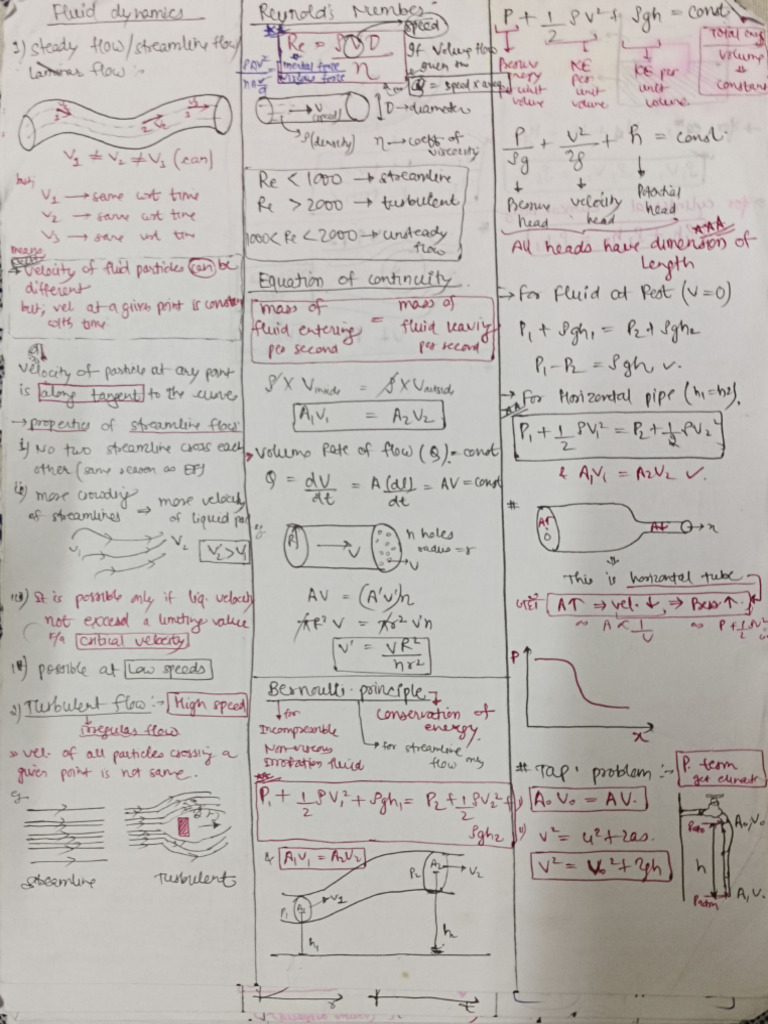 Fluid dynamics
1) Steady flow/streamline flow/
laminar flow :-
V1 ≠ V2 ≠ V3 (can)
but,
V1 → same wrt time
V2 → same wrt time
V3 → same wrt time
means
* velocity of fluid particles can be
different
but, vel at a given point is constant
with time.
velocity of particle at any point
is along tangent to the curve
→ properties of streamline flow:
i) No two streamline cross each
other (same reason as EF)
ii) more crowding ⇒ more velocity
of streamlines of liquid
V1 V2 V2 > V1
iii) It is possible only if liq. velocity
not exceed a limiting value
critical velocity
iv) possible at low speeds
2) Turbulent flow :- High speed
irregular flow
⇒ vel. of all particles crossing a
given point is not same.
eg.
streamline Turbulent
Reynold's Number
speed
Re = ρVD / η
inertial force
viscous force
If Volume flow
given then
Q = speed x area
V (speed)
D → diameter
ρ (density) η → coeff of
viscosity
Re < 1000 → streamline
Re > 2000 → turbulent
1000 < Re < 2000 → unsteady
flow
Equation of continuity
mass of fluid entering per second = mass of fluid leaving per second
ρ x Vinside = ρ x Voutside
A1V1 = A2V2
→ volume Rate of flow (Q) = const
Q = dV/dt = A(dl)/dt = AV = const
R → V n holes
radius = r
AV = (A'V')n
πR² V = πr² V'n
V' = VR²/nr²
Bernoulli principle
for
Incompressible
Non-viscous
Irrotation fluid
conservation of
energy
→ for streamline
flow only
P1 + 1/2 ρV1² + ρgh1 = P2 + 1/2 ρV2² +
ρgh2
& A1V1 = A2V2
P1 A1 → V1 P2 A2 → V2
h1 h2
P + 1/2 ρV² + ρgh = const
Pressure
energy
per unit
volume
KE
per
unit
volume
KE per
unit
volume
Total energy
volume
constant
P/ρg + V²/2g + h = const.
Pressure
head
velocity
head
Potential
head
All heads have dimension of
length
→ For Fluid at Rest (v=0)
P1 + ρgh1 = P2 + ρgh2
P1 - P2 = ρgh ✓.
→ For Horizontal pipe (h1=h2).
P1 + 1/2 ρV1² = P2 + 1/2 ρV2²
& A1V1 = A2V2 ✓.
#
A↑ A↓ → x
0
This is horizontal tube
A↑ ⇒ vel. ↓, ⇒ Pressr ↑.
∞ A ∝ 1/V ∞ P + 1/2 ρV²
P
x
# TAP problem :- P. term
get eliminate
i) A0V0 = AV.
ii) v² = u² + 2as.
V² = V0² + 2gh
A0, V0
h
Patm A, V